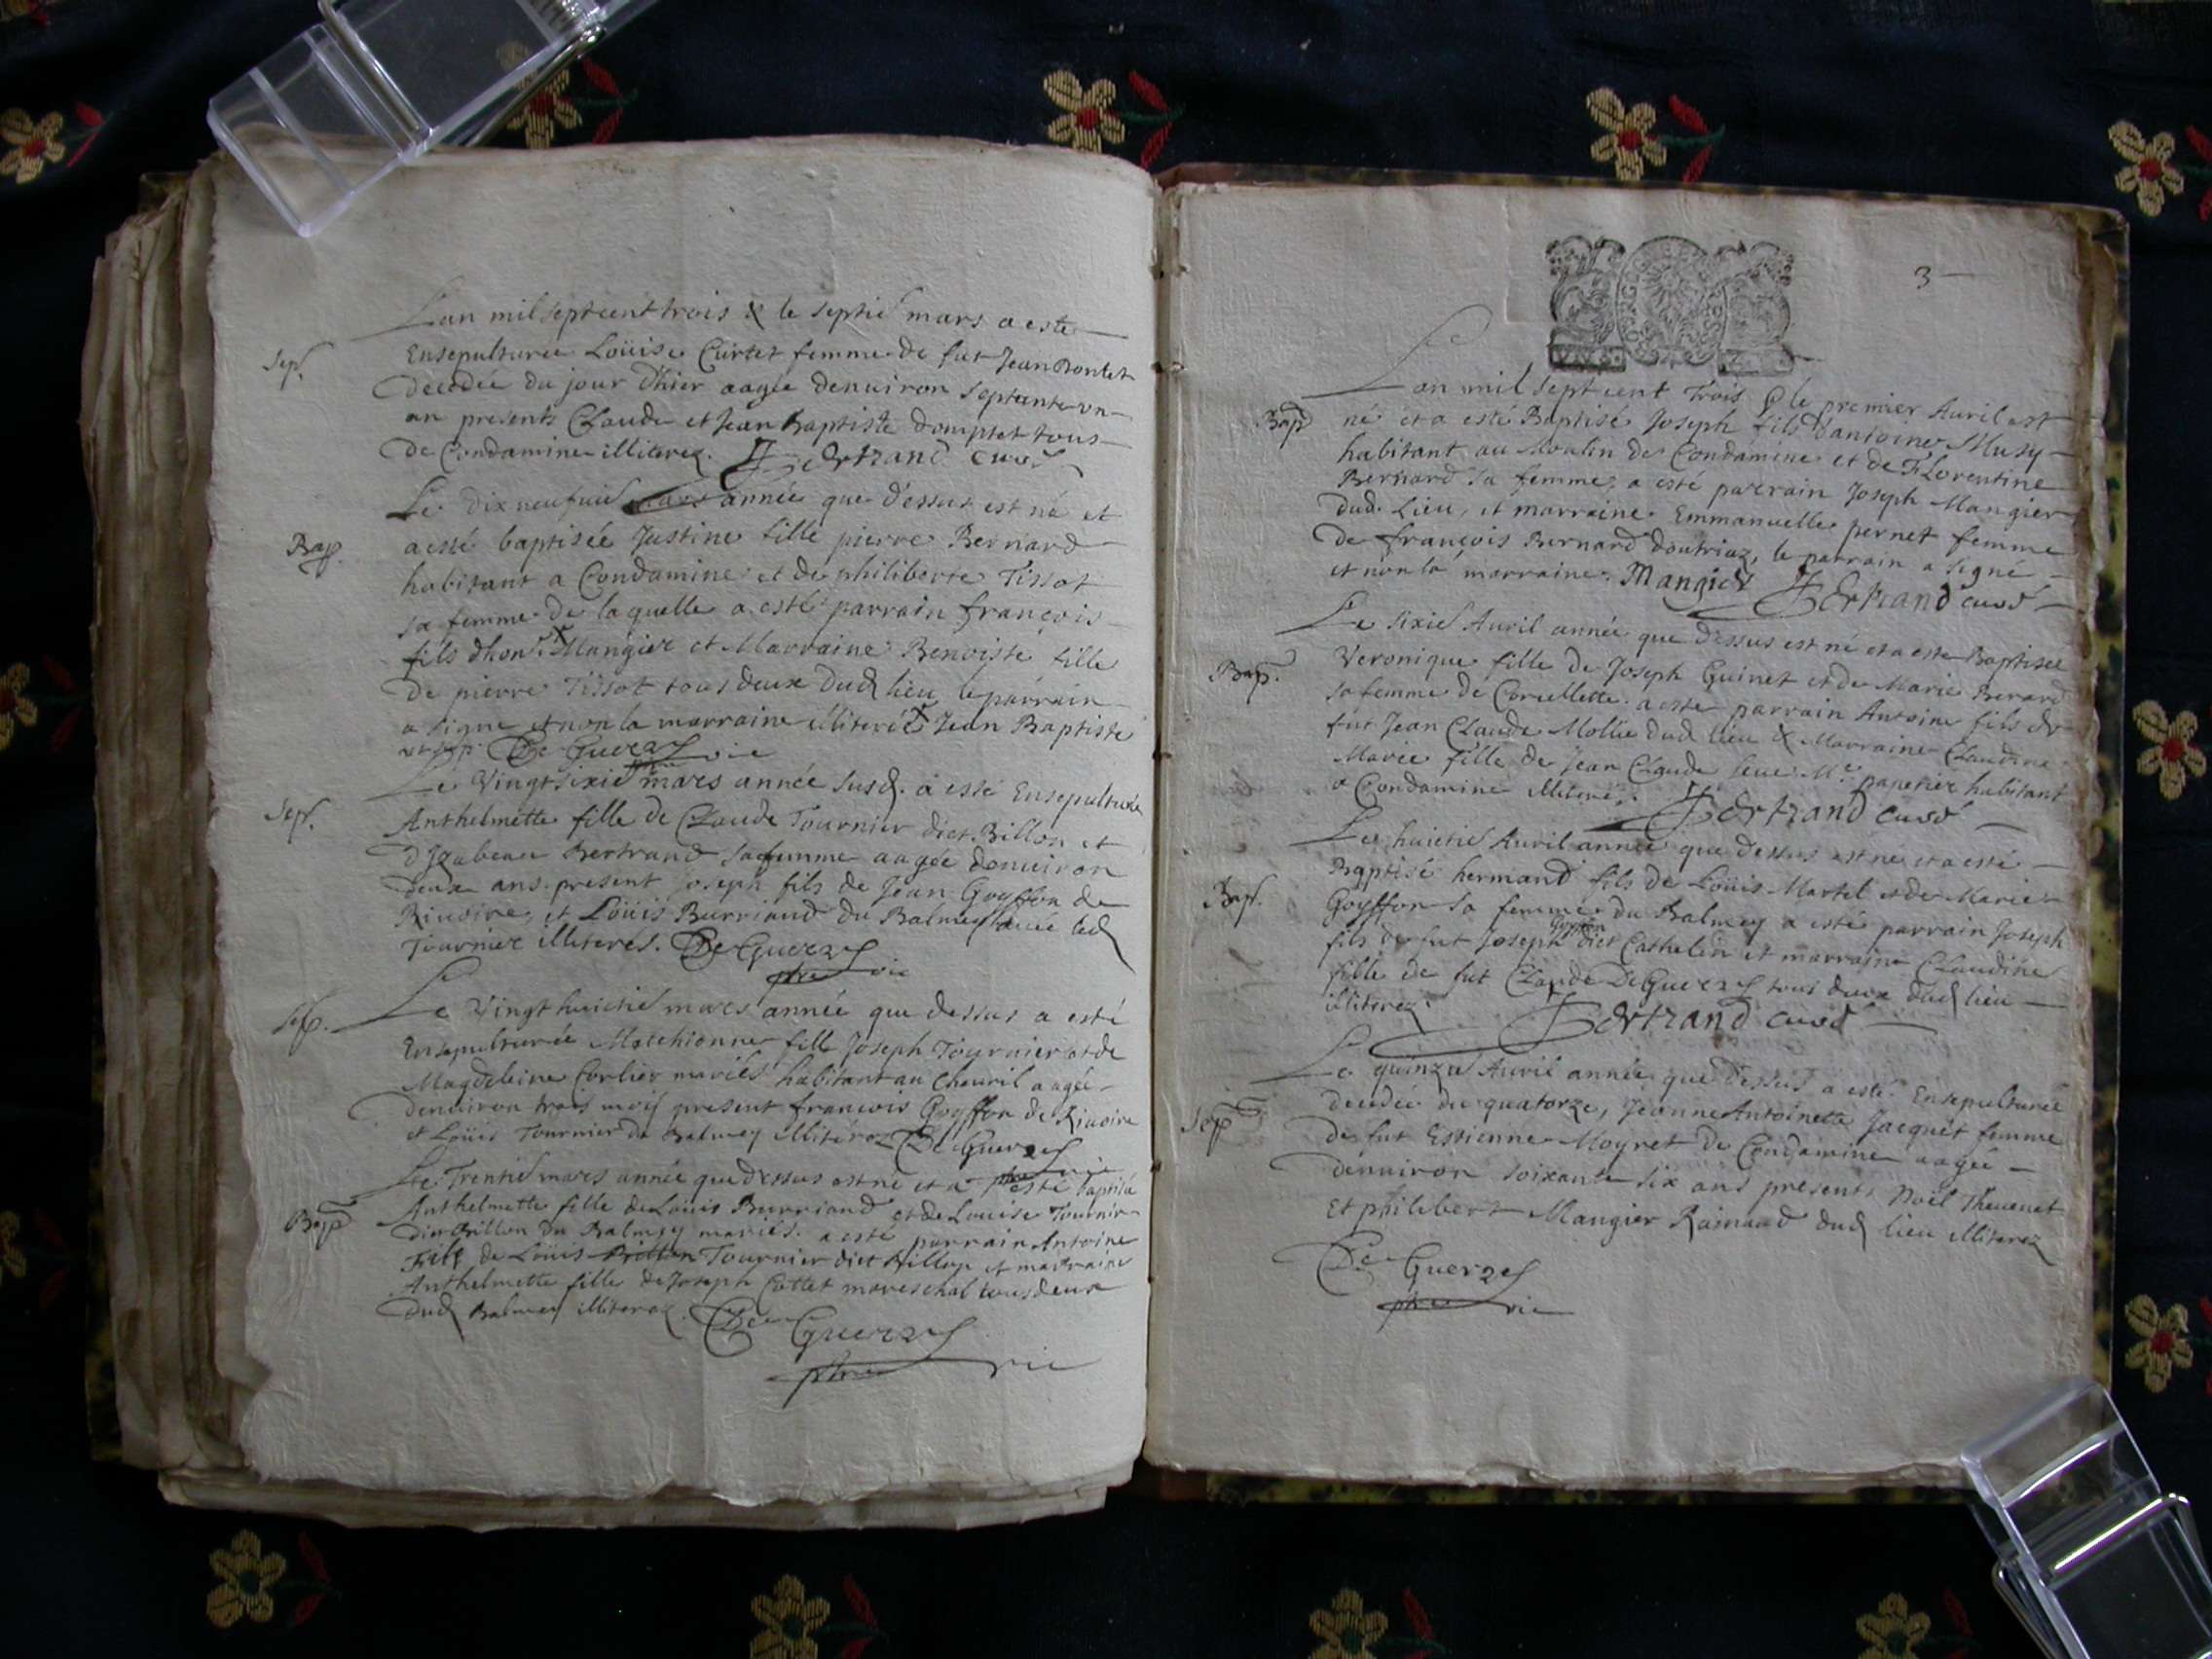 Lan mil sept cent trois & le septie mars a este
Sep.
Ensepulturee Loüise Curtet femme de fut Jean Bontet
decedée du jour d'hier aagée denuiron septante un
an presents Claude et Jean Baptiste tous
de Condamine illiterez. Bertrand curé
Le dix neufuie mars année que dessus est né et
Bap.
a esté baptisée Justine fille pierre Bernard
habitant a Condamine et de philiberte Tissot
sa femme de laquelle a esté parrain françois
fils dhon. Mangier et Marraine Benoiste fille
De pierre Tissot tous deux dud lieu le parrain
a signe et non la marraine illiterée Jean Baptiste
De Guerzes vic
Le Vingt sixie mars année susd. a esté Ensepulturée
Sep.
Anthelmette fille de Claude Tournier dict Billon et
dYzabeau Bertrand sa femme aagée denuiron
deux ans. present Joseph fils de Jean Goyffon de
Riuoire, et Loüis Burriand du Balmey led
Tournier illiterés. De Guerzes
pbre vic
Sep.
Le Vingt huictie mars année que dessus a esté
Ensepulturée fille Joseph Tournier et de
Magdeleine Corlier mariés habitant au Cheuril aagée
denuiron trois mois present francois Goyffon de Riuoire
et Loüis Tournier du Balmey illiterez De Guerzes
pbre vic
Le Trentie mars année que dessus est né et a esté baptisée
Bap
Anthelmette fille de Louis Burriand et de Louise Tournier
dict Billon du Balmey mariés. a esté parrain Antoine
fils de Loüis Billon Tournier dict Billon et marraine
Anthelmette fille de Joseph Cottet mareschal tous deux
dud Balmey illiterez. De Guerzes
pbre vic
3
Lan mil sept cent Trois & le premier Auril est
Bap
né et a esté Baptisé Joseph fils d'antoine Musy
habitant au Moulin de Condamine et de Florentine
Bernard sa femme, a esté parrain Joseph Mangier
dud. Lieu, et marraine Emmanuelle pernet femme
de françois Bernard doutriaz, le parrain a signé
et non la marraine. Mangier Bertrand curé
Le sixie Auril année que dessus est né et a este Baptisee
Bap.
Veronique fille de Joseph Guinet et de Marie Berard
sa femme de Corcellette. a este parrain Antoine fils de
fut Jean Claude Mollie dud lieu & Marraine Claudine
Marie fille de Jean Claude Me. papetier habitant
a Condamine illiterez. Bertrand curé
Le huictie Auril année que dessus est né et a esté
Bap.
Baptisé hermand fils de Loüis Martel et de Marie
Goyffon sa femme du Balmey a esté parrain Joseph
Goyffon
fils de fut Joseph dict Cathelin et marraine Claudine
fille de fut Claude De Guerzes tous deux dud lieu
illiterez. Bertrand curé
Le quinzie Auril année que dessus a esté Ensepulturée
Sep
decedée du quatorze, Jeanne Antoinette Jacquet femme
de fut Estienne Moyret de Condamine aagée
denuiron soixante six ans presents Noël Theuenet
Et philibert Mangier Rainaud dud lieu illiterez
De Guerzes
pbre vic